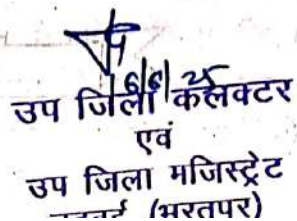 उप जिला कलैक्टर
एवं
उप जिला मजिस्ट्रेट
(भरतपुर)